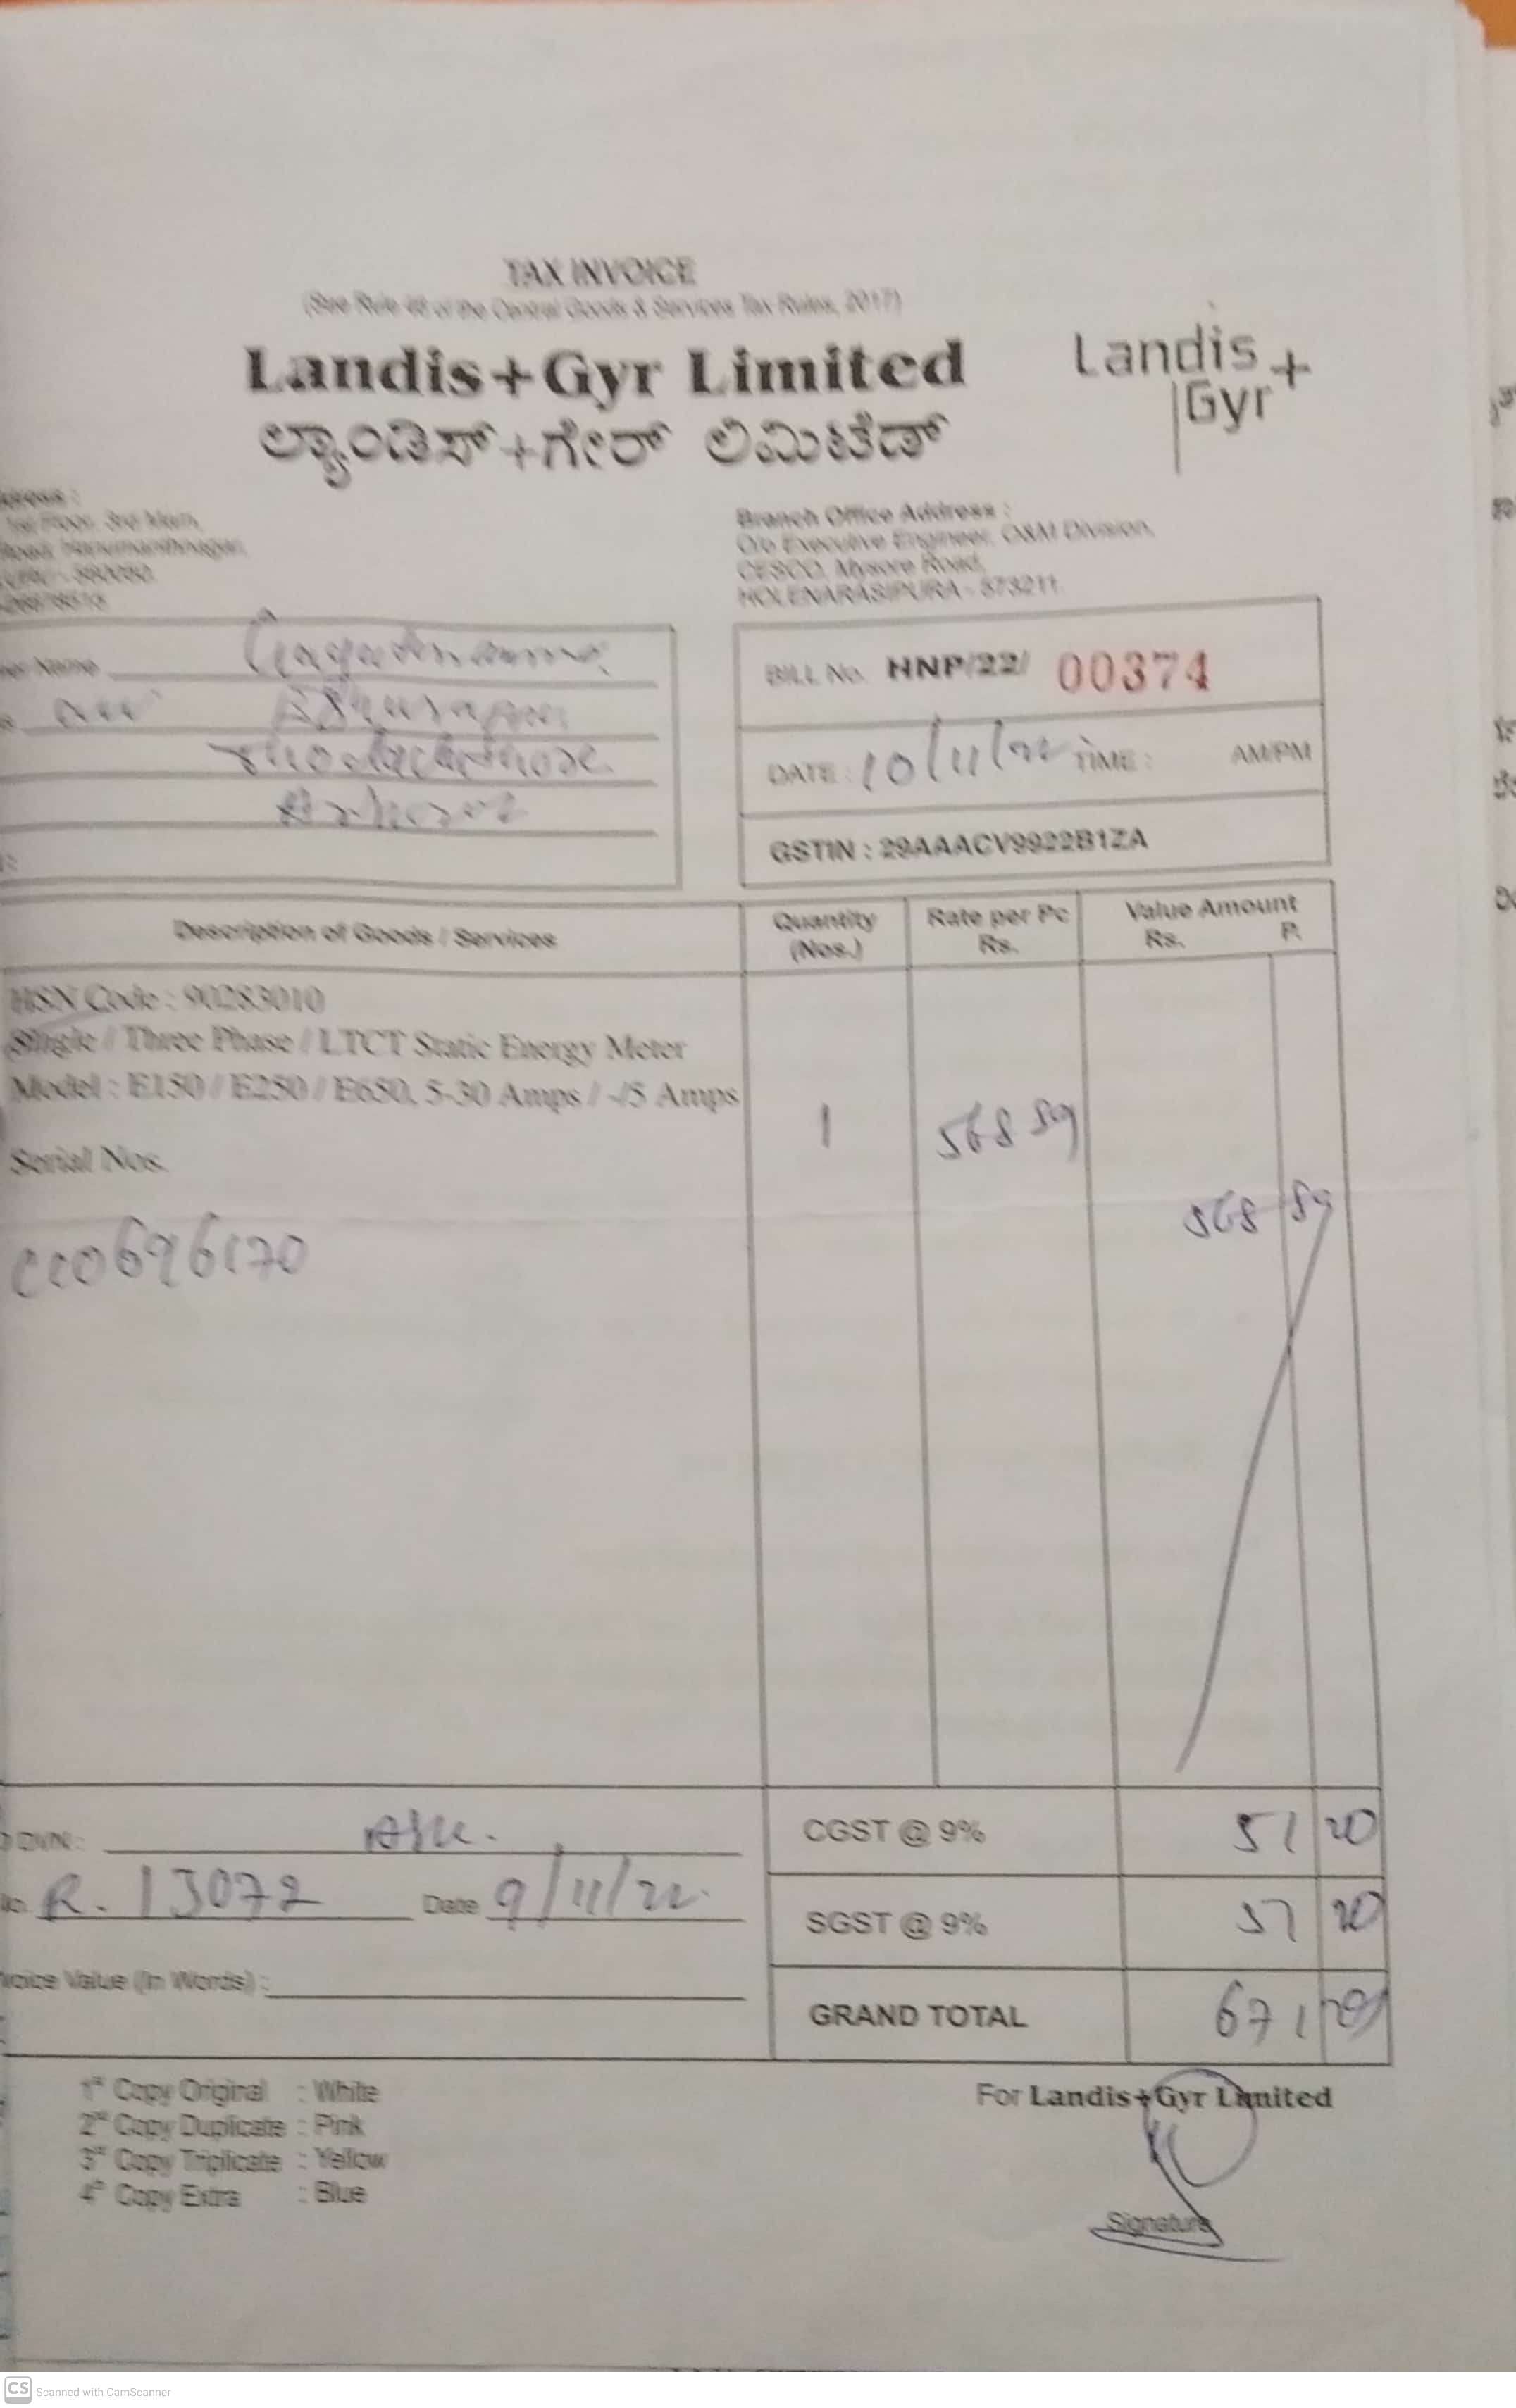 TAX INVOICE
(See Rule 48 of the Central Goods & Services Tax Rules, 2017)
Landis+Gyr Limited
ಲ್ಯಾಂಡಿಸ್+ಗೇರ್ ಲಿಮಿಟೆಡ್
Landis+
Gyr
1st Floor, 3rd Main,
Road, Hanumanthnagar,
Branch Office Address :
O/o Executive Engineer, O&M Division,
CESCO, Mysore Road,
HOLENARASIPURA - 573211.
Name
BILL No. HNP/22/ 00374
DATE : 10/11/22 TIME : AM/PM
GSTIN : 29AAACV9922B1ZA
Description of Goods / Services
Quantity (Nos.)
Rate per Pc Rs.
Value Amount Rs. P.
HSN Code : 90283010
Single / Three Phase / LTCT Static Energy Meter
Model : E150 / E250 / E650, 5-30 Amps / -/5 Amps
1 568 89
Serial Nos.
568 89
CGST @ 9% 51 20
R. 13072 Date 9/11/22
SGST @ 9% 51 20
Value (In Words) :
GRAND TOTAL 671
1st Copy Original : White
2nd Copy Duplicate : Pink
3rd Copy Triplicate : Yellow
4th Copy Extra : Blue
For Landis+Gyr Limited
Signature
CS Scanned with CamScanner